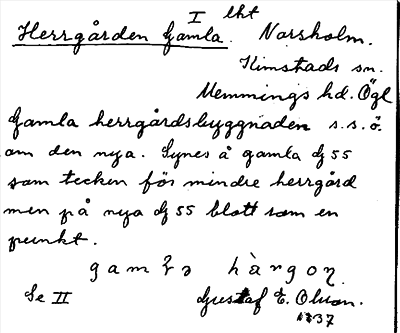 I lht
Herrgården Gamla. Norsholm.
Kimstads sn.
Memmings hd. Ögl
Gamla herrgårdsbyggnaden s.s.ö.
om den nya. Synes å gamla G 55
som tecken för mindre herrgård
men på nya G 55 blott som en
punkt.
hàrgoɳ
Se II Gustaf E. Olsson.
1937